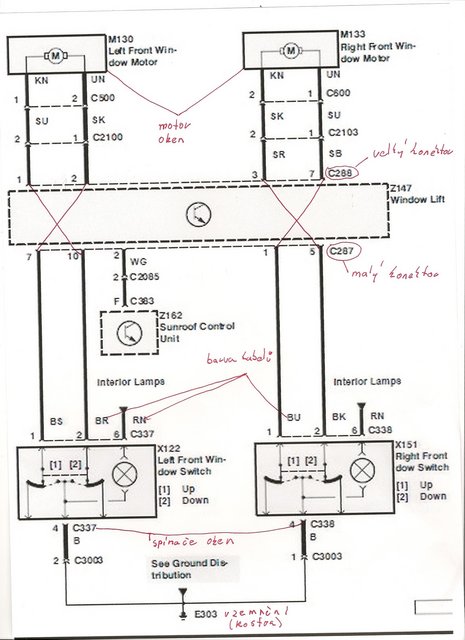 M130
Left Front Win-
dow Motor
M133
Right Front Win-
dow Motor
M
M
KN
UN
KN
UN
1
2
C500
1
2
C600
SU
SK
SK
SU
1
2
C2100
motor
oken
1
2
C2103
SR
SB
velký konektor
1
2
3
7
C288
Z147
Window Lift
7
10
2
1
5
C287
WG
2
C2085
malý konektor
F
C383
Z162
Sunroof Control
Unit
barva kabelů
Interior Lamps
Interior Lamps
BS
BR
RN
BU
BK
RN
1
2
6
C337
1
2
6
C338
X122
Left Front Win-
dow Switch
[1] Up
[2] Down
X151
Right Front
dow Switch
[1] Up
[2] Down
[1]
[2]
[1]
[2]
4
C337
4
C338
B
spínače oken
B
2
C3003
1
C3003
See Ground Dis-
tribution
E303
uzemnění
(kostra)